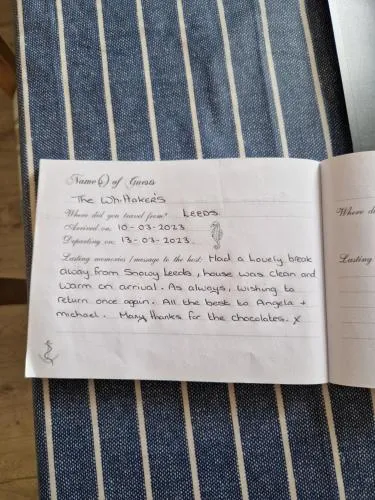 Name(s) of Guests
The Whittaker's
Where did you travel from? Leeds
Arrived on: 10-03-2023
Departing on: 13-03-2023.
Lasting memories / message to the host: Had a lovely break
away from Snowy Leeds, house was clean and
warm on arrival. As always, wishing to
return once again. All the best to Angela +
michael. Many thanks for the chocolates. x
Where di
Lasting